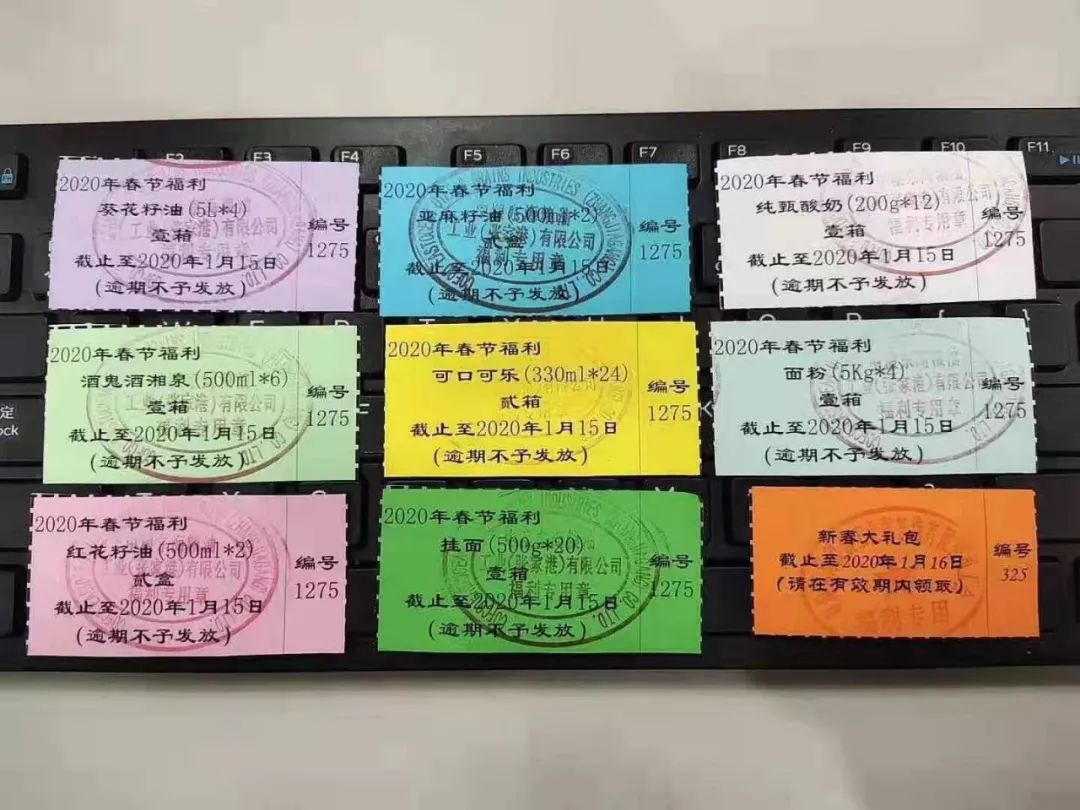 2020年春节福利
葵花籽油(5L*4)
壹箱
截止至2020年1月15日
(逾期不予发放)
编号
1275
2020年春节福利
亚麻籽油(500ml*2)
贰盒
截止至2020年1月15日
(逾期不予发放)
编号
1275
工业(张家港)有限公司
福利专用章
2020年春节福利
纯甄酸奶(200g*12)
壹箱
截止至2020年1月15日
(逾期不予发放)
编号
1275
2020年春节福利
酒鬼酒湘泉(500ml*6)
壹箱
截止至2020年1月15日
(逾期不予发放)
编号
1275
工业(张家港)有限公司
2020年春节福利
可口可乐(330ml*24)
贰箱
截止至2020年1月15日
(逾期不予发放)
编号
1275
2020年春节福利
面粉(5Kg*4)
壹箱
截止至2020年1月15日
(逾期不予发放)
编号
1275
福利专用章
2020年春节福利
红花籽油(500ml*2)
贰盒
截止至2020年1月15日
(逾期不予发放)
编号
1275
工业(张家港)有限公司
福利专用章
2020年春节福利
挂面(500g*20)
壹箱
截止至2020年1月15日
(逾期不予发放)
编号
1275
工业(张家港)有限公司
福利专用章
新春大礼包
截止至2020年1月16日
(请在有效期内领取)
编号
325
福利专用
F2
F3
F4
F5
F6
F7
F8
F9
F10
F11